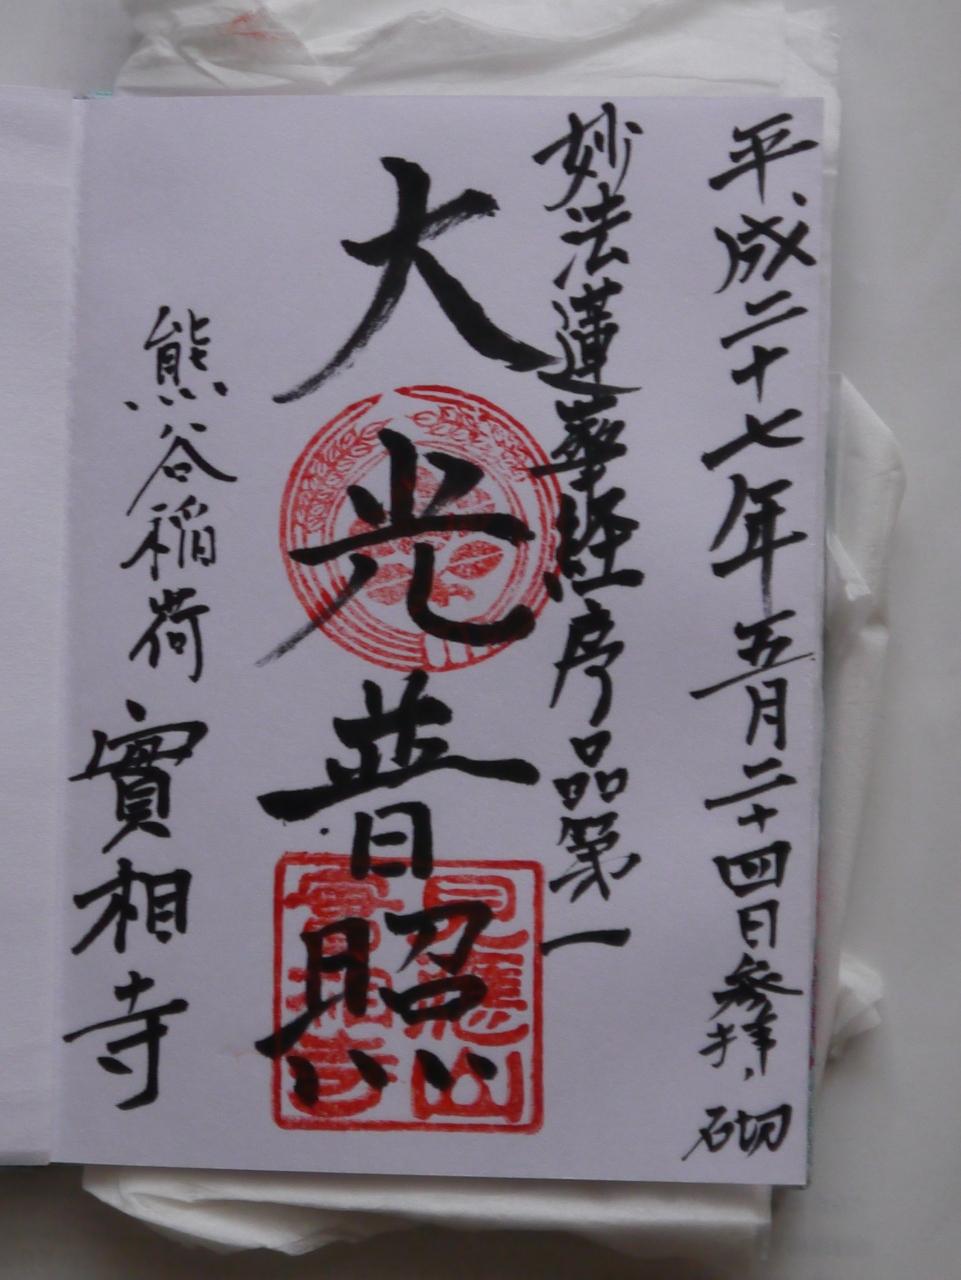 平成二十七年五月二十四日参拝之砌
妙法蓮華経序品第一
大光普照
熊谷稲荷
實相寺
見應山
實相寺